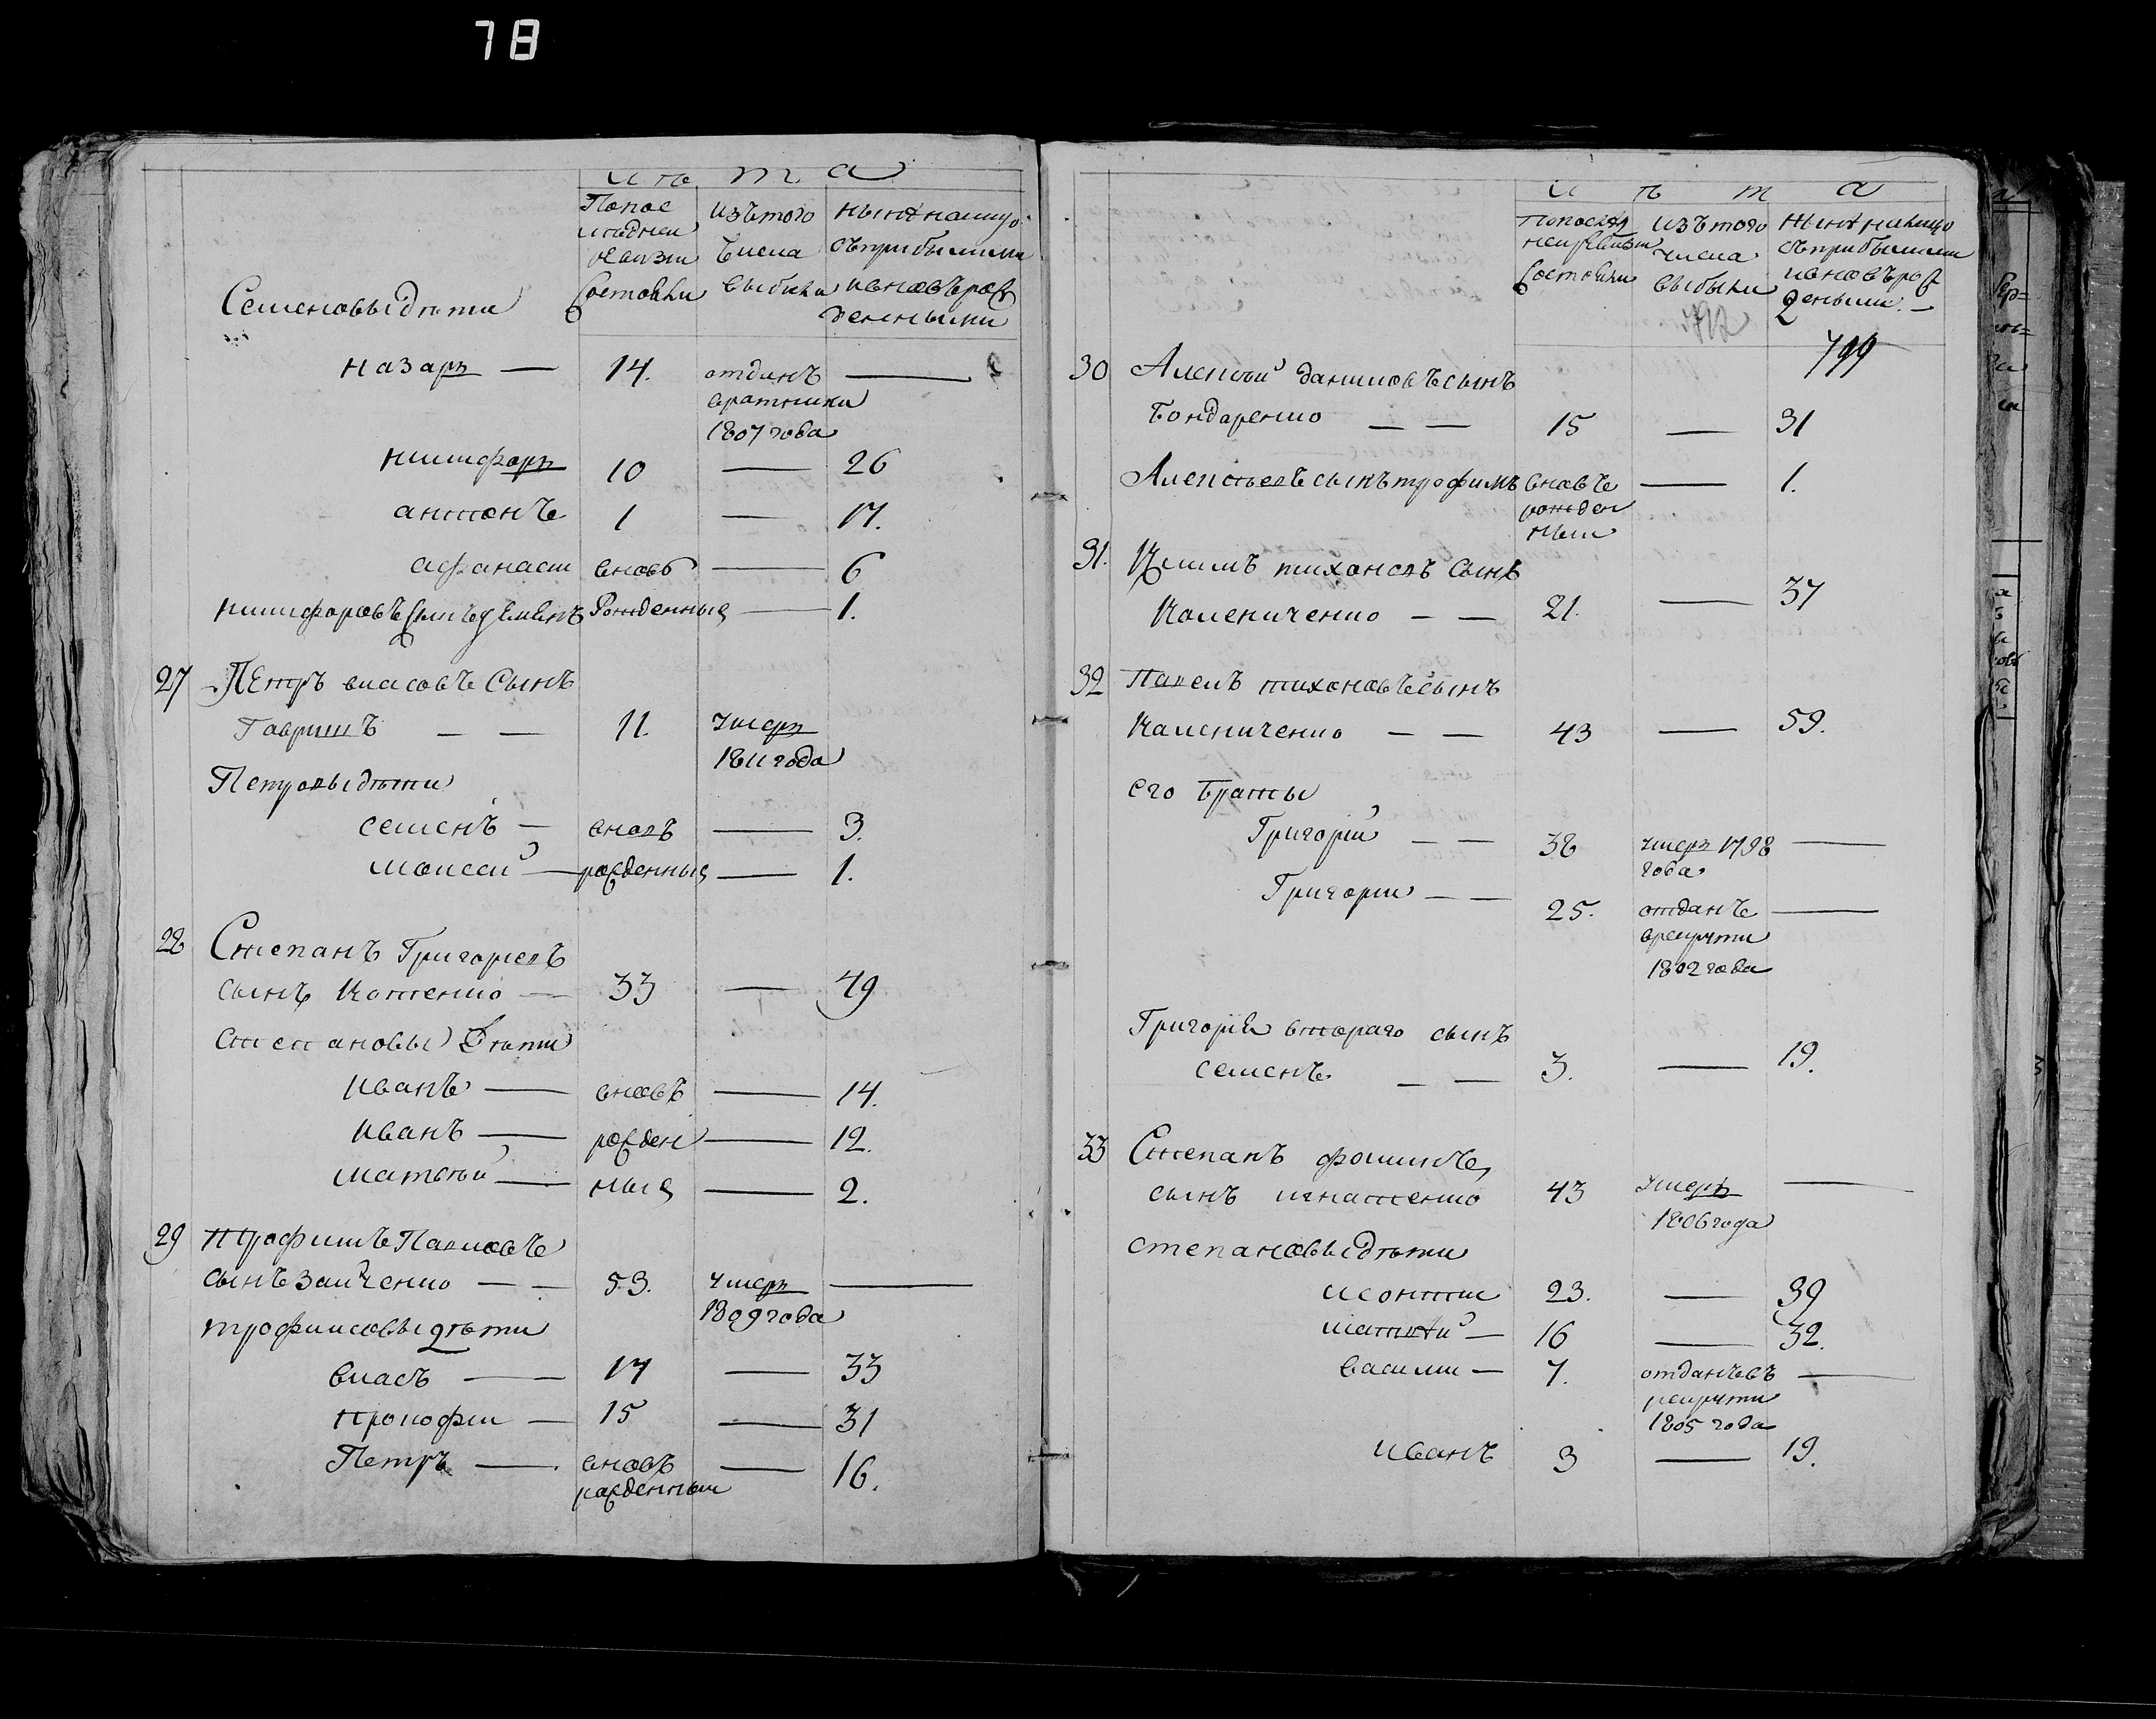 78
лѣта
Попос
лѣдней
ревизи
состояли
изъ того
числа
выбыли
нынѣ налицо
съ прибылыми
и вновь рож
денными
Семеновы дѣти
назаръ — 14. отданъ —
вратники
1807 года
никифоръ 10 — 26
антонъ 1 — 17.
афанаси вновь — 6
никифоровъ сынъ Рожденныя — 1.
27 Петръ власовъ Сынъ
Гавришъ — — 11. умеръ
1811 года
Петровы дѣти
семенъ — вновь — 3.
моисей — рожденныя — 1.
28 Степанъ Григорьевъ
сынъ Котенко — 33 — 49
степановы Дѣти
иванъ — вновь — 14.
иванъ — рожден — 12.
матвѣй — ныя — 2.
29 трофимъ Павловъ
сынъ заиченко — — 53. умеръ —
1809 года
трофимовы дѣти
власъ — 17 — 33
прокофи — 15 — 31
Петръ — вновь — 16.
рожденныи
лѣта
Попослѣд
ней ревизи
состояли
изъ того
числа
выбыли
нынѣ налицо
съ прибылыми
и вновь рож
деными. —
799
30 Алексѣй даниловъ сынъ
Бондаренко — — 15 — 31
Алексѣевъ сынъ трофимъ вновь — 1.
рожден
ныи
31. Климъ тихоновъ Сынъ
Колениченко — — 21. — 37
32 Павелъ тихоновъ сынъ
Калениченко — — 43 — 59.
его Браты
Григорій — — 38 умеръ 1798 —
года
Григории — — 25. отданъ —
врекруты
1802 года
Григорія втораго сынъ
семенъ — — 3. — 19.
33 Степанъ фоминъ
сынъ игнатенко 43 умеръ —
1806 года
степановы дѣти
леонтии 23. — 39
матвѣй — 16 — 32.
васили — 7. отданъ въ —
рекруты
1805 года
иванъ 3 — 19.